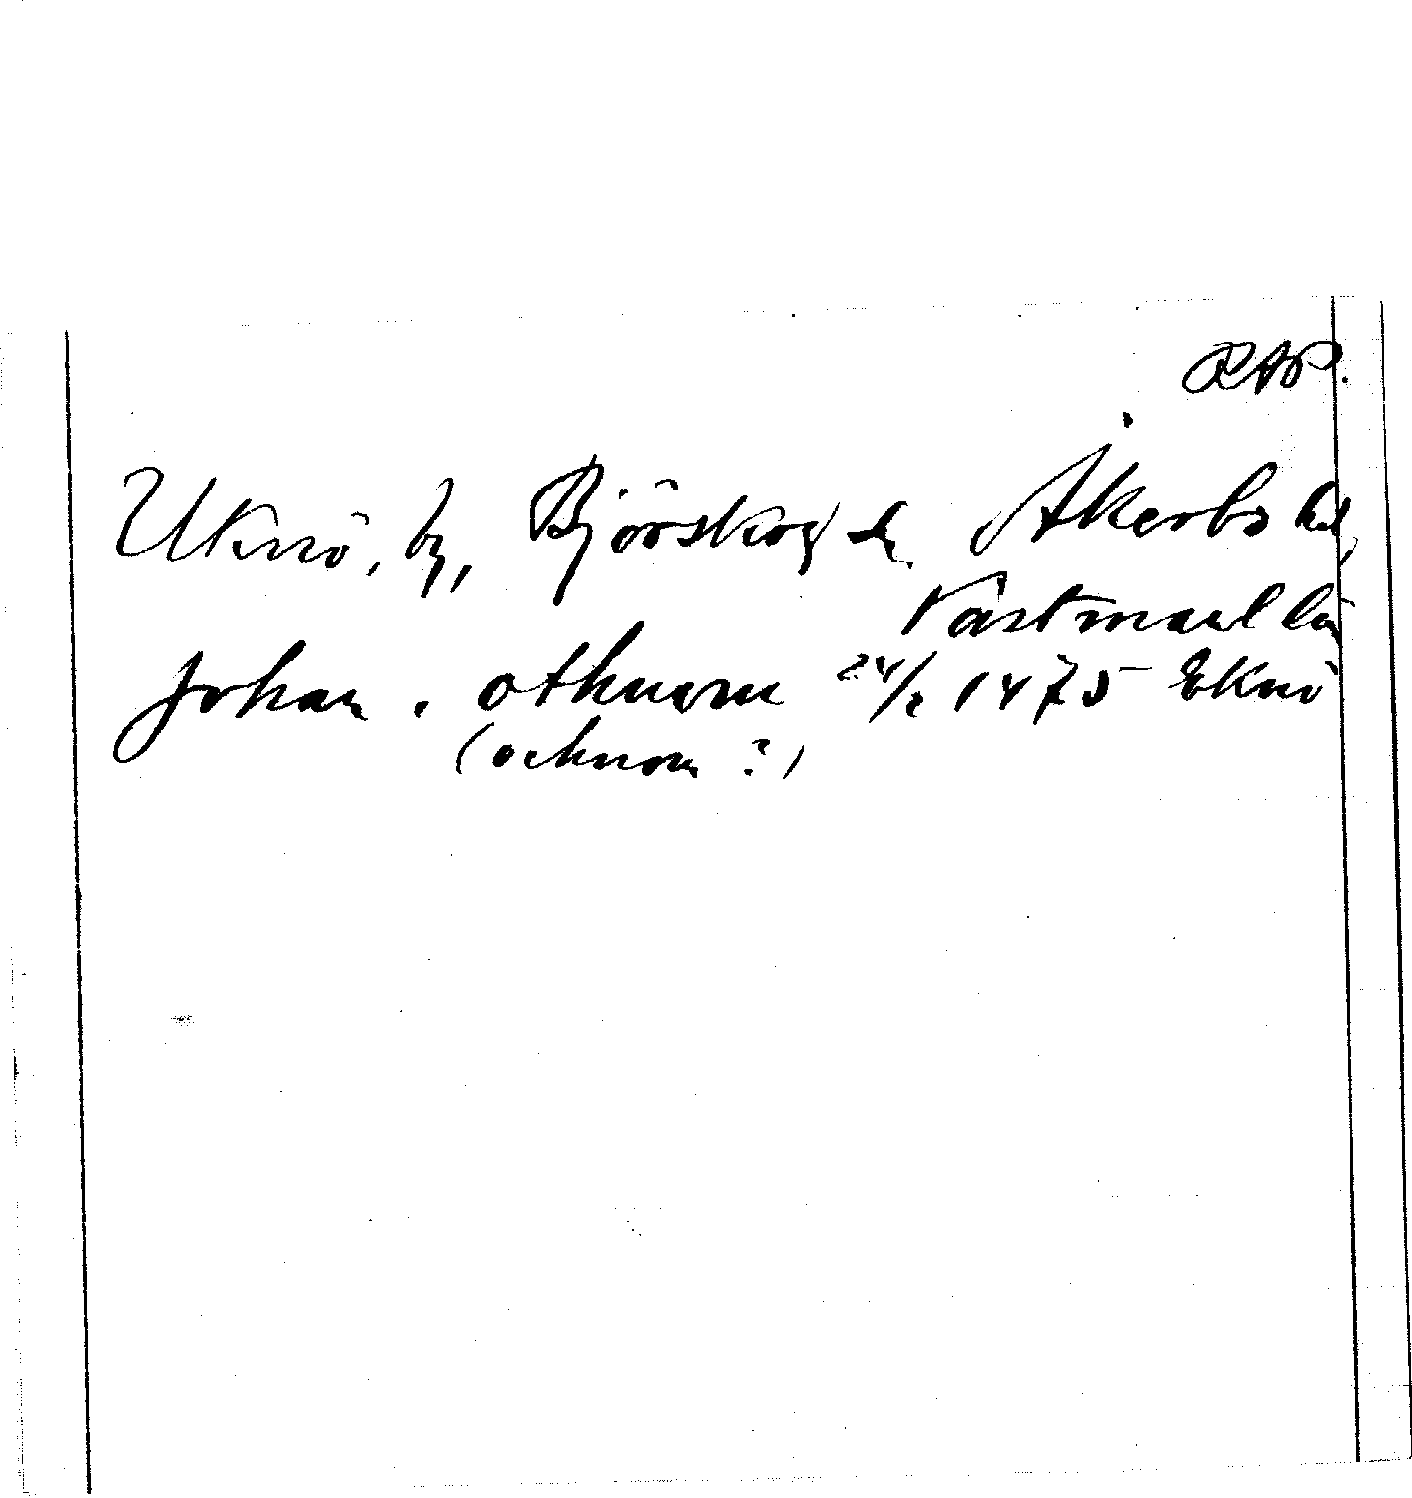 RAP.
Uknö, by, Björskog sn. Åkerbo hd,
Västmanl län
Johan . othnom 24/2 1475 Eknö
(ocknom ?)